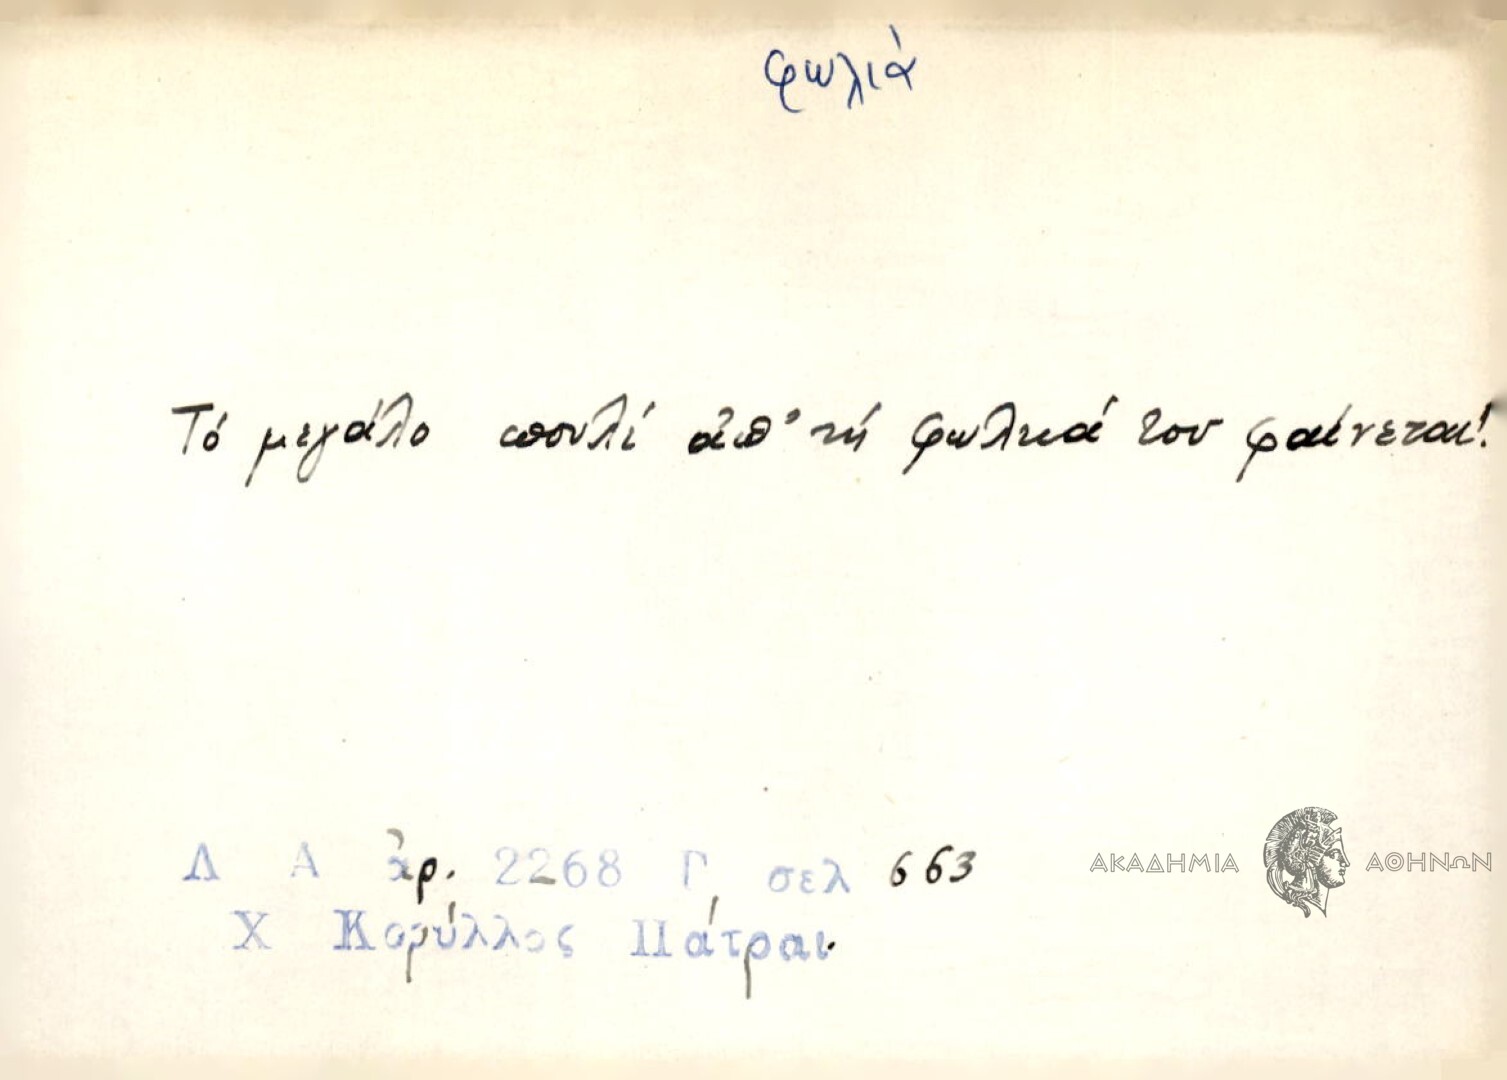 φωλιά
Τό μεγάλο πουλί ἀπ' τή φωλιά του φαίνεται!
Λ Α ἀρ. 2268 Γ σελ 663
Χ Κορύλλος Πάτραι.
ΑΚΑΔΗΜΙΑ ΑΘΗΝΩΝ